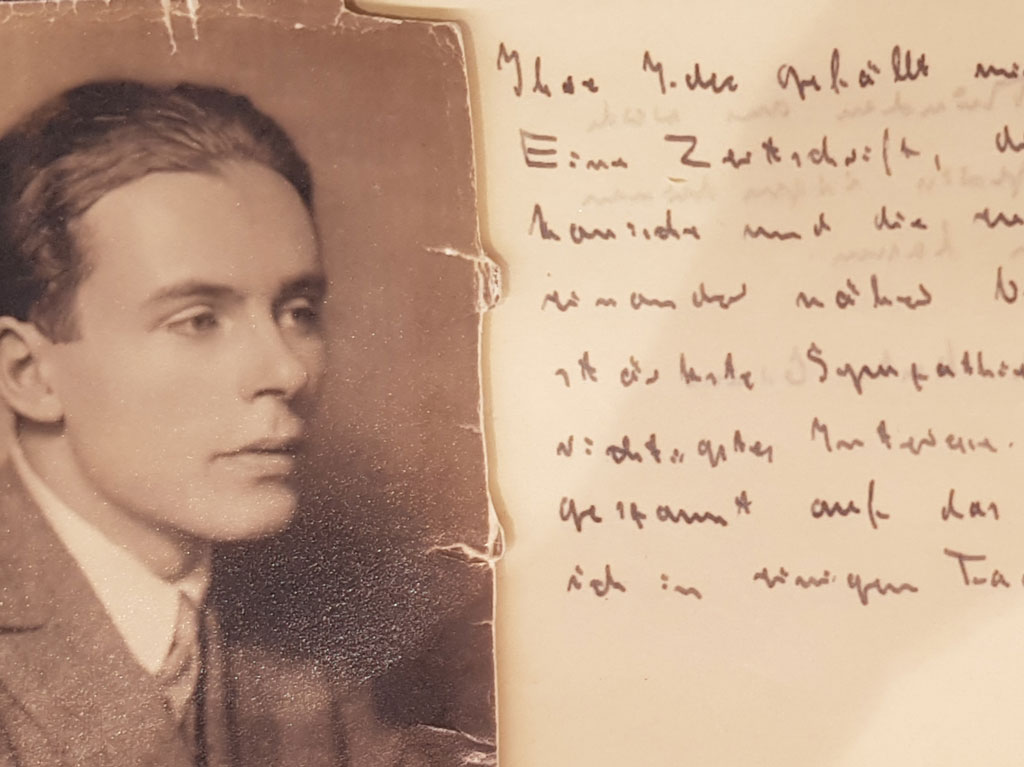 Ihre Idee gefällt mi
Eine Zeitschrift, d
kanische und die eu
einander näher b
stärkste Sympathie
richtigstes Interesse.
gespannt auf das
ich in einigen Ta